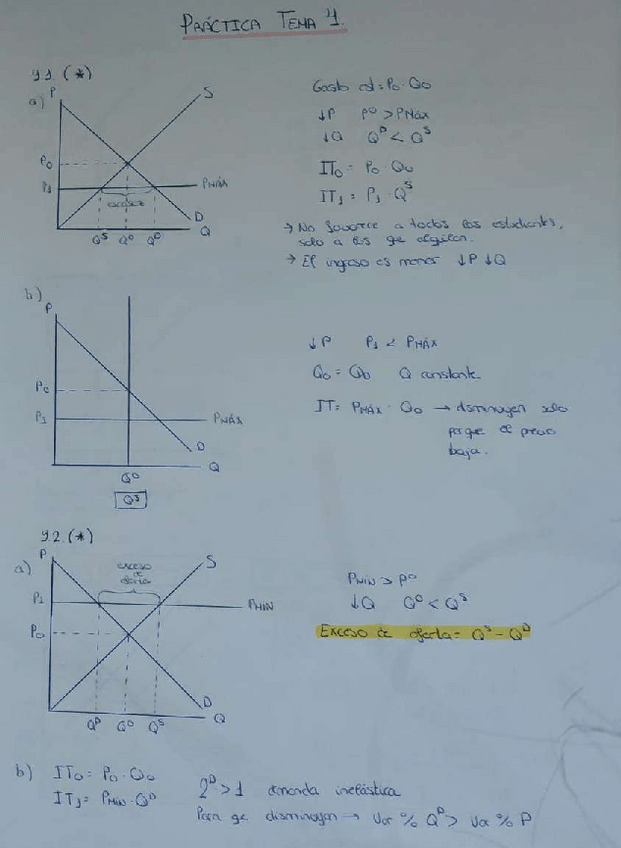 PRÁCTICA TEMA 4.
4.1 (*)
a)
P
S
P₀
P₁
PMÁX
escasez
D
Q
Qˢ Q⁰ Qᴰ
P₀ · Q₀
↓P P⁰ > PMáx
↓Q Qᴰ < Qˢ
IT₀ = P₀ · Q₀
IT₁ = P₁ · Qˢ
→ No favorece a todos los estudiantes,
solo a los qe alquilan.
→ El ingreso es menor ↓P ↓Q
b)
P
P₁
PMÁX
D
Q
Q⁰
Qˢ
↓P P₁ < PMÁX
Q constante
IT = PMÁX · Q₀ → disminuyen solo
porque el precio
baja.
4.2 (*)
a)
P
exceso
de
oferta
S
P₁
PMÍN
P₀
D
Q
Qᴰ Q⁰ Qˢ
PMÍN > P⁰
↓Q Qᴰ < Qˢ
Exceso de oferta = Qˢ - Qᴰ
b) IT₀ = P₀ · Q₀
IT₁ = PMÍN · Qᴰ
> 1 demanda inelástica
Para qe disminuyan → Var % Qᴰ > Var % P